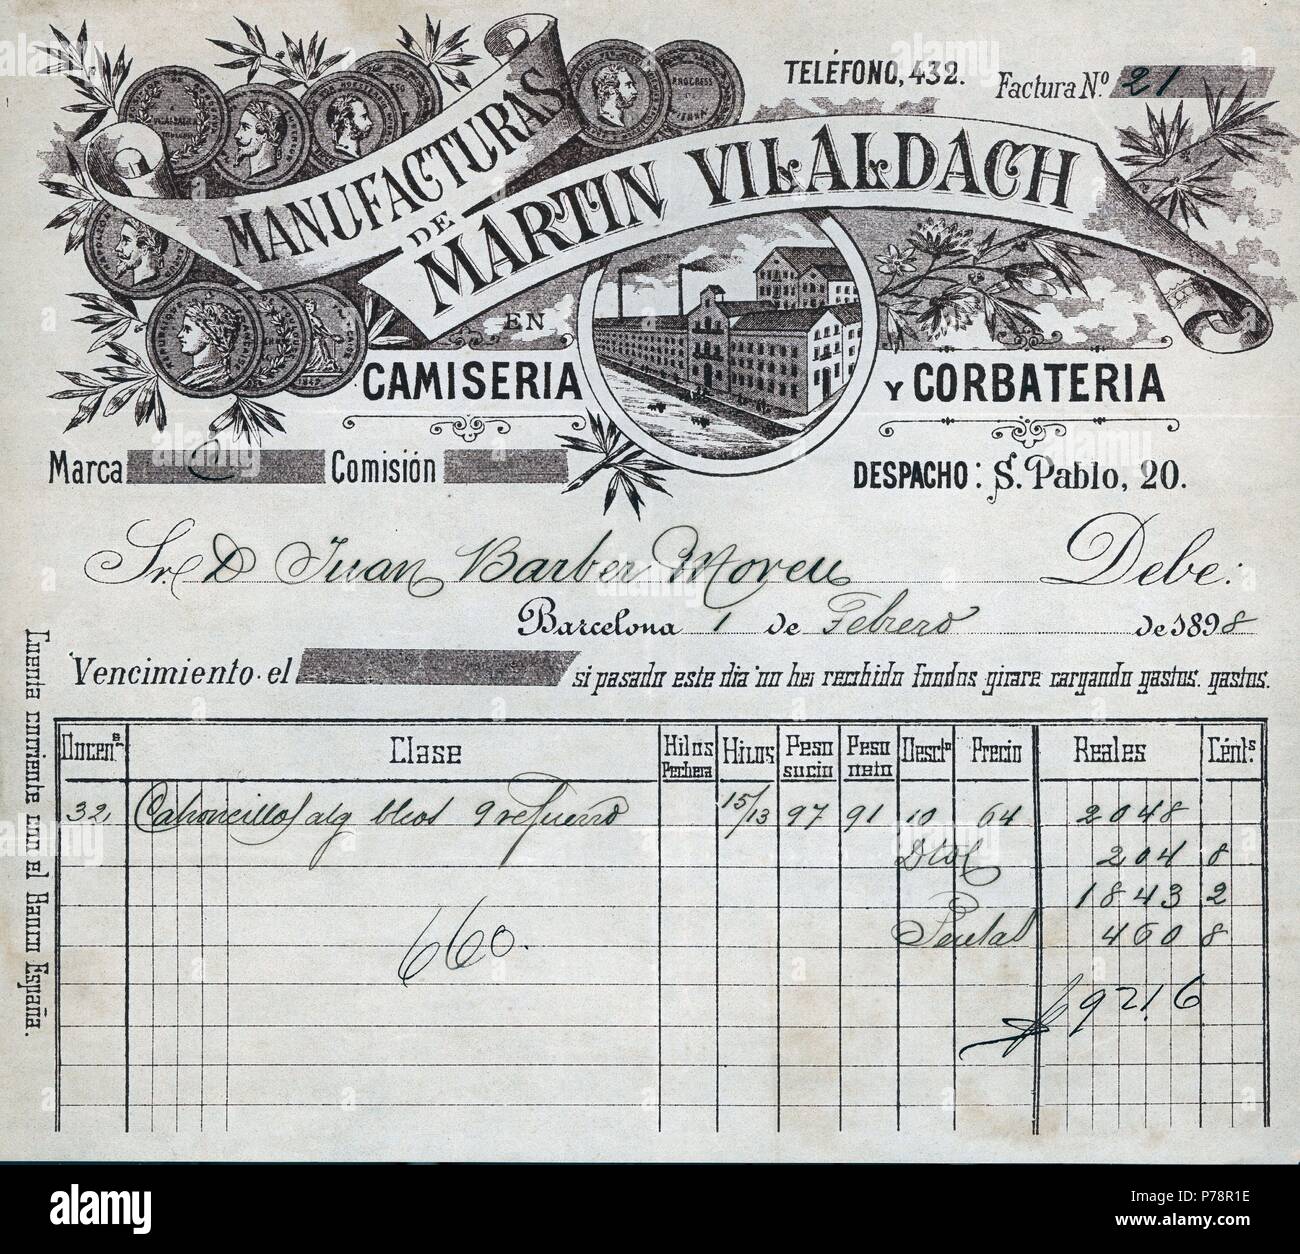 TELÉFONO, 432. Factura N.º 21
MANUFACTURAS
DE
MARTIN VILALDACH
EN
CAMISERIA Y CORBATERIA
Marca C Comisión DESPACHO: S. Pablo, 20.
Sr. D Juan Barber Moreu Debe:
Barcelona 1 de Febrero de 1898
Vencimiento el si pasado este dia no hei recibido fondos girare cargando gastos. gastos.
Cuenta corriente con el Banco España.
Docen.s Clase Hilos Pechera Hilos Peso sucio Peso neto Descto Precio Reales Cént.s
32, Calzoncillos alg blcos 9 refuerzo 15/13 97 91 10 64 2048
Dtol 204 8
1843 2
Pesetas 460 8
660.
9216
alamy
a
Image ID: P78R1E
www.alamy.com